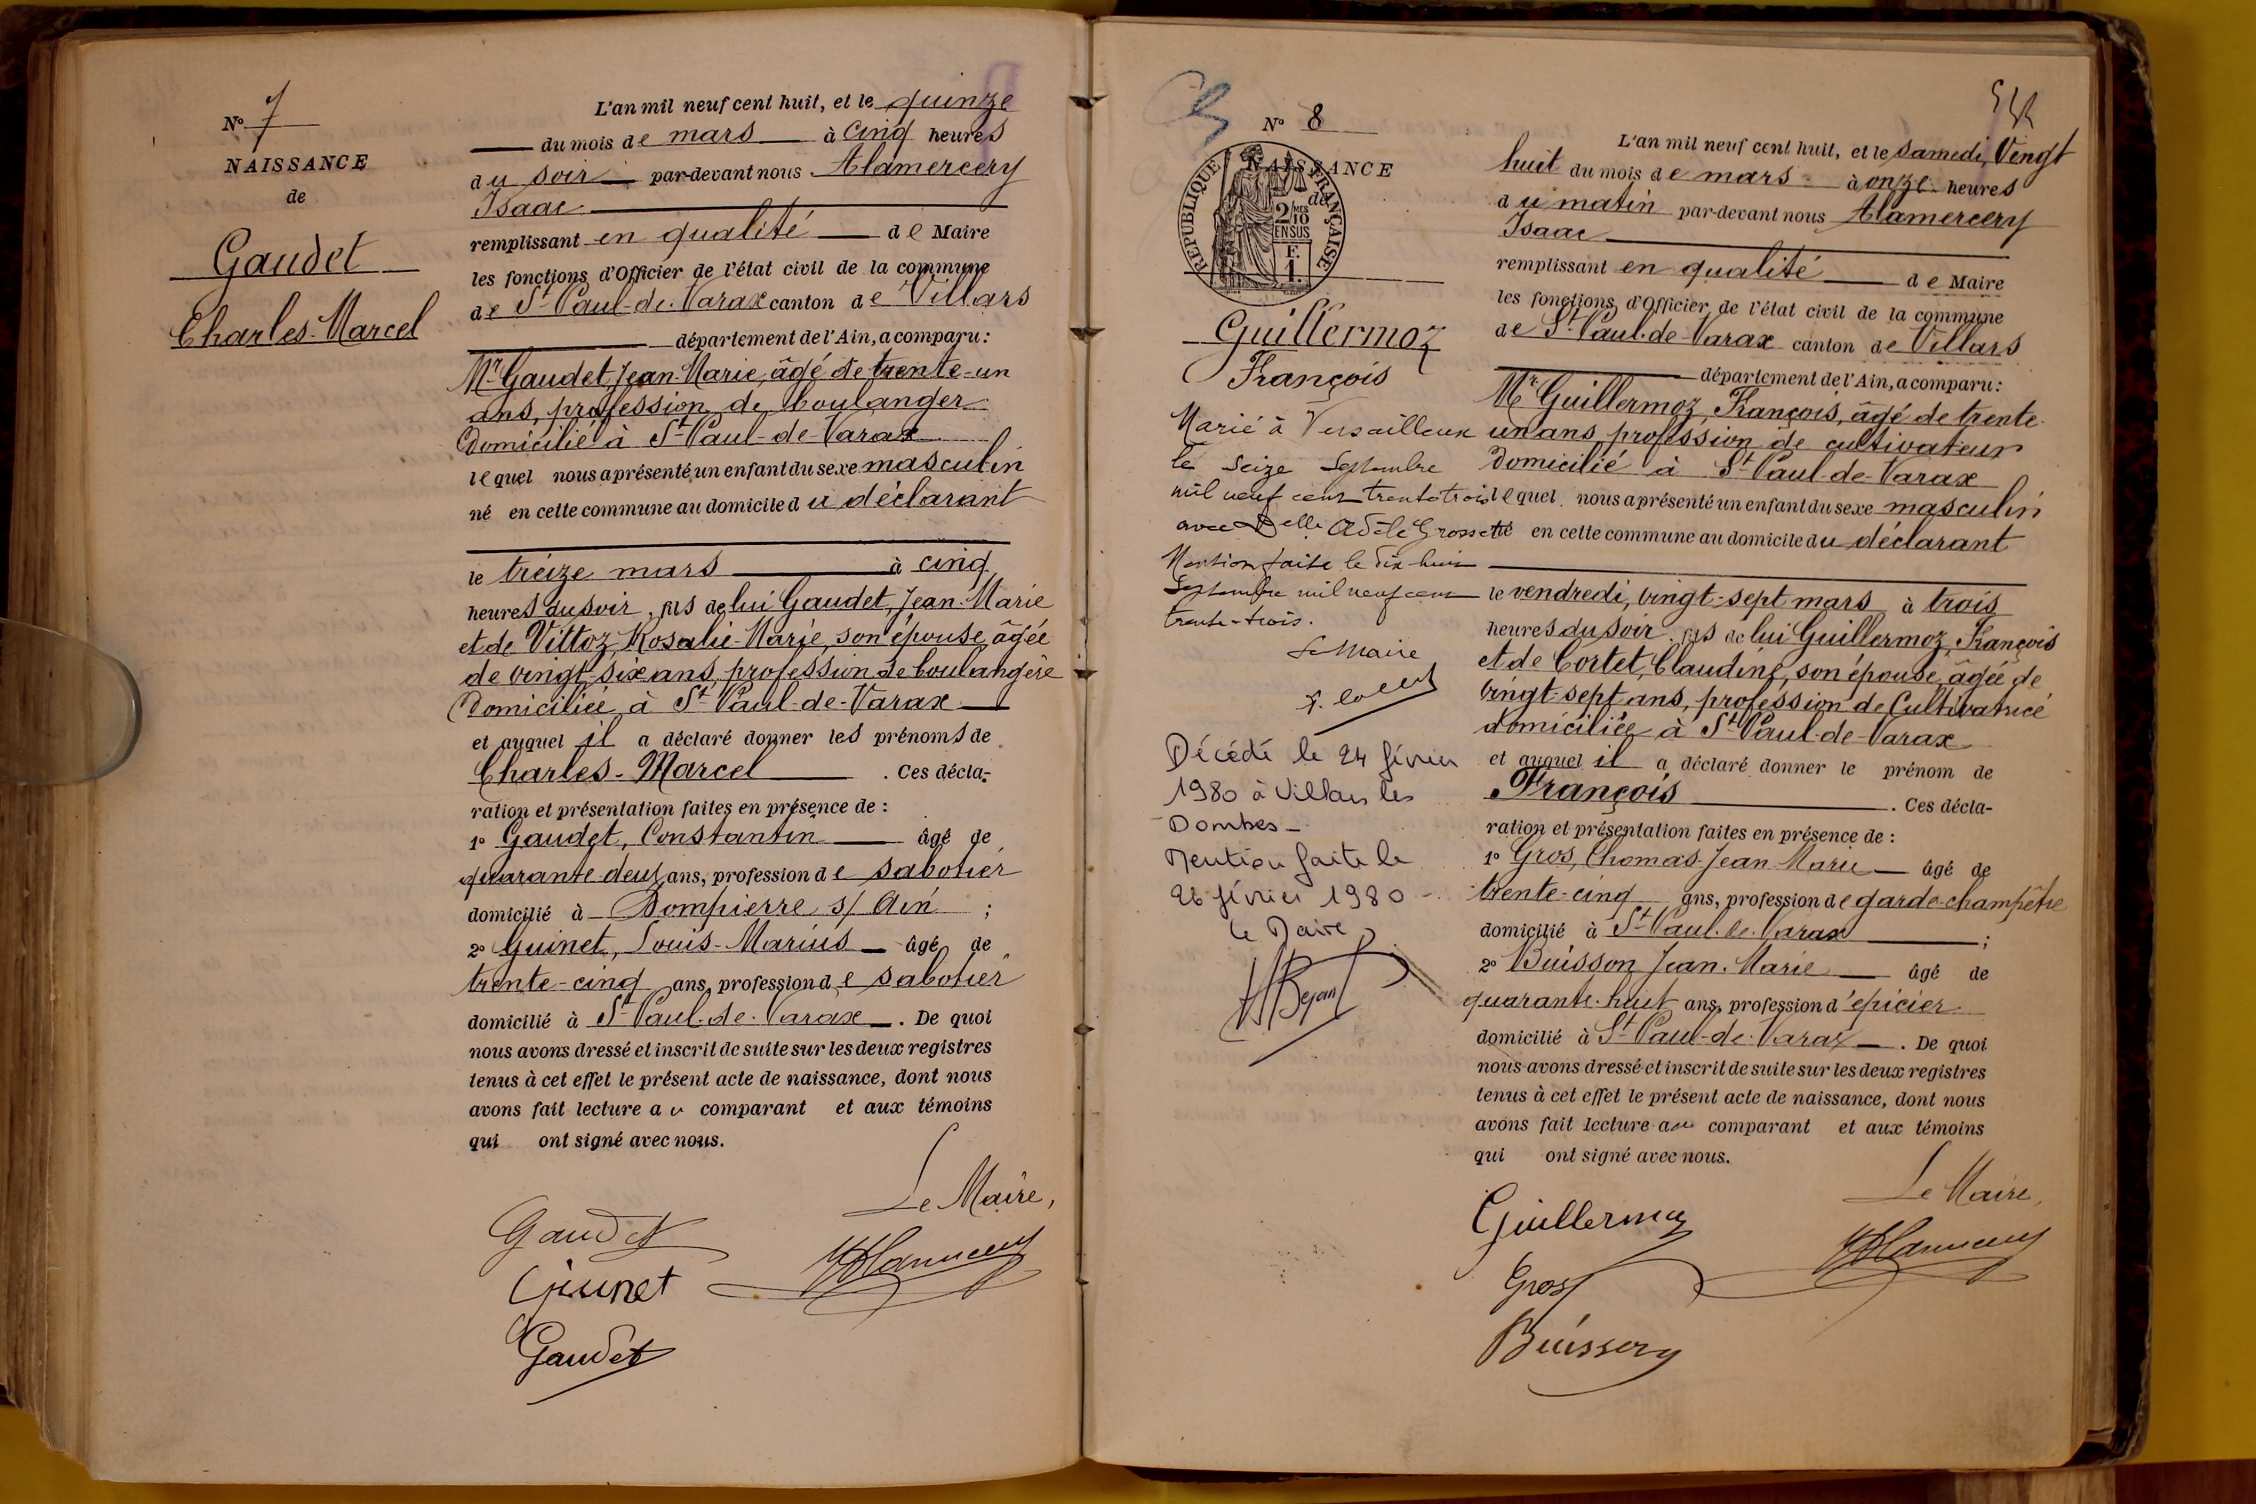 N° 7
NAISSANCE
de
Gaudet
Charles-Marcel
L'an mil neuf cent huit, et le quinze
du mois de mars à cinq heures
du soir par-devant nous Alamercery
Isaac
remplissant en qualité de Maire
les fonctions d'Officier de l'état civil de la commune
de St Paul-de-Varax canton de Villars
département de l'Ain, a comparu:
Mr Gaudet, Jean-Marie, âgé de trente-un
ans, profession de boulanger
domicilié à St Paul-de-Varax
lequel nous a présenté un enfant du sexe masculin
né en cette commune au domicile du déclarant
le treize mars à cinq
heures du soir, fils de lui Gaudet, Jean-Marie
et de Vittoz, Rosalie-Marie, son épouse, âgée
de vingt-six ans, profession de boulangère
domiciliée à St Paul-de-Varax
et auquel il a déclaré donner les prénoms de
Charles-Marcel. Ces décla-
ration et présentation faites en présence de :
1° Gaudet, Constantin âgé de
quarante-deux ans, profession de sabotier
domicilié à Dompierre s/ Ain ;
2° Guinet, Louis-Marius âgé de
trente-cinq ans, profession de sabotier
domicilié à St Paul-de-Varax. De quoi
nous avons dressé et inscrit de suite sur les deux registres
tenus à cet effet le présent acte de naissance, dont nous
avons fait lecture au comparant et aux témoins
qui ont signé avec nous.
Le Maire,
Gaudet
Guinet
Gaudet
N° 8
NAISSANCE
de
RÉPUBLIQUE FRANÇAISE
2/10MES
EN SUS
F.
1.
Guillermoz
François
Marié à Versailleux
le seize septembre
mil neuf cent trente trois
avec Delle Adèle Grosset
Mention faite le dix huit
Septembre mil neuf cent
trente-trois.
Le Maire
Décédé le 24 février
1980 à Villars les
Dombes -
Mention faite le
26 février 1980 -
Le Maire
L'an mil neuf cent huit, et le samedi, vingt
huit du mois de mars à onze heures
du matin par-devant nous Alamercery
Isaac
remplissant en qualité de Maire
les fonctions d'Officier de l'état civil de la commune
de St Paul-de-Varax canton de Villars
département de l'Ain, a comparu:
Mr Guillermoz, François, âgé de trente
un ans, profession de cultivateur
domicilié à St Paul-de-Varax
lequel nous a présenté un enfant du sexe masculin
né en cette commune au domicile du déclarant
le vendredi, vingt-sept mars à trois
heures du soir, fils de lui Guillermoz, François
et de Cortet, Claudine, son épouse, âgée de
vingt-sept ans, profession de Cultivatrice
domiciliée à St Paul-de-Varax
et auquel il a déclaré donner le prénom de
François. Ces décla-
ration et présentation faites en présence de :
1° Gros, Thomas-Jean-Marie âgé de
trente-cinq ans, profession de garde-champêtre
domicilié à St Paul-de-Varax ;
2° Buisson, Jean-Marie âgé de
quarante-huit ans, profession d'épicier
domicilié à St Paul-de-Varax. De quoi
nous avons dressé et inscrit de suite sur les deux registres
tenus à cet effet le présent acte de naissance, dont nous
avons fait lecture au comparant et aux témoins
qui ont signé avec nous.
Le Maire,
Guillermoz
Gros
Buisson